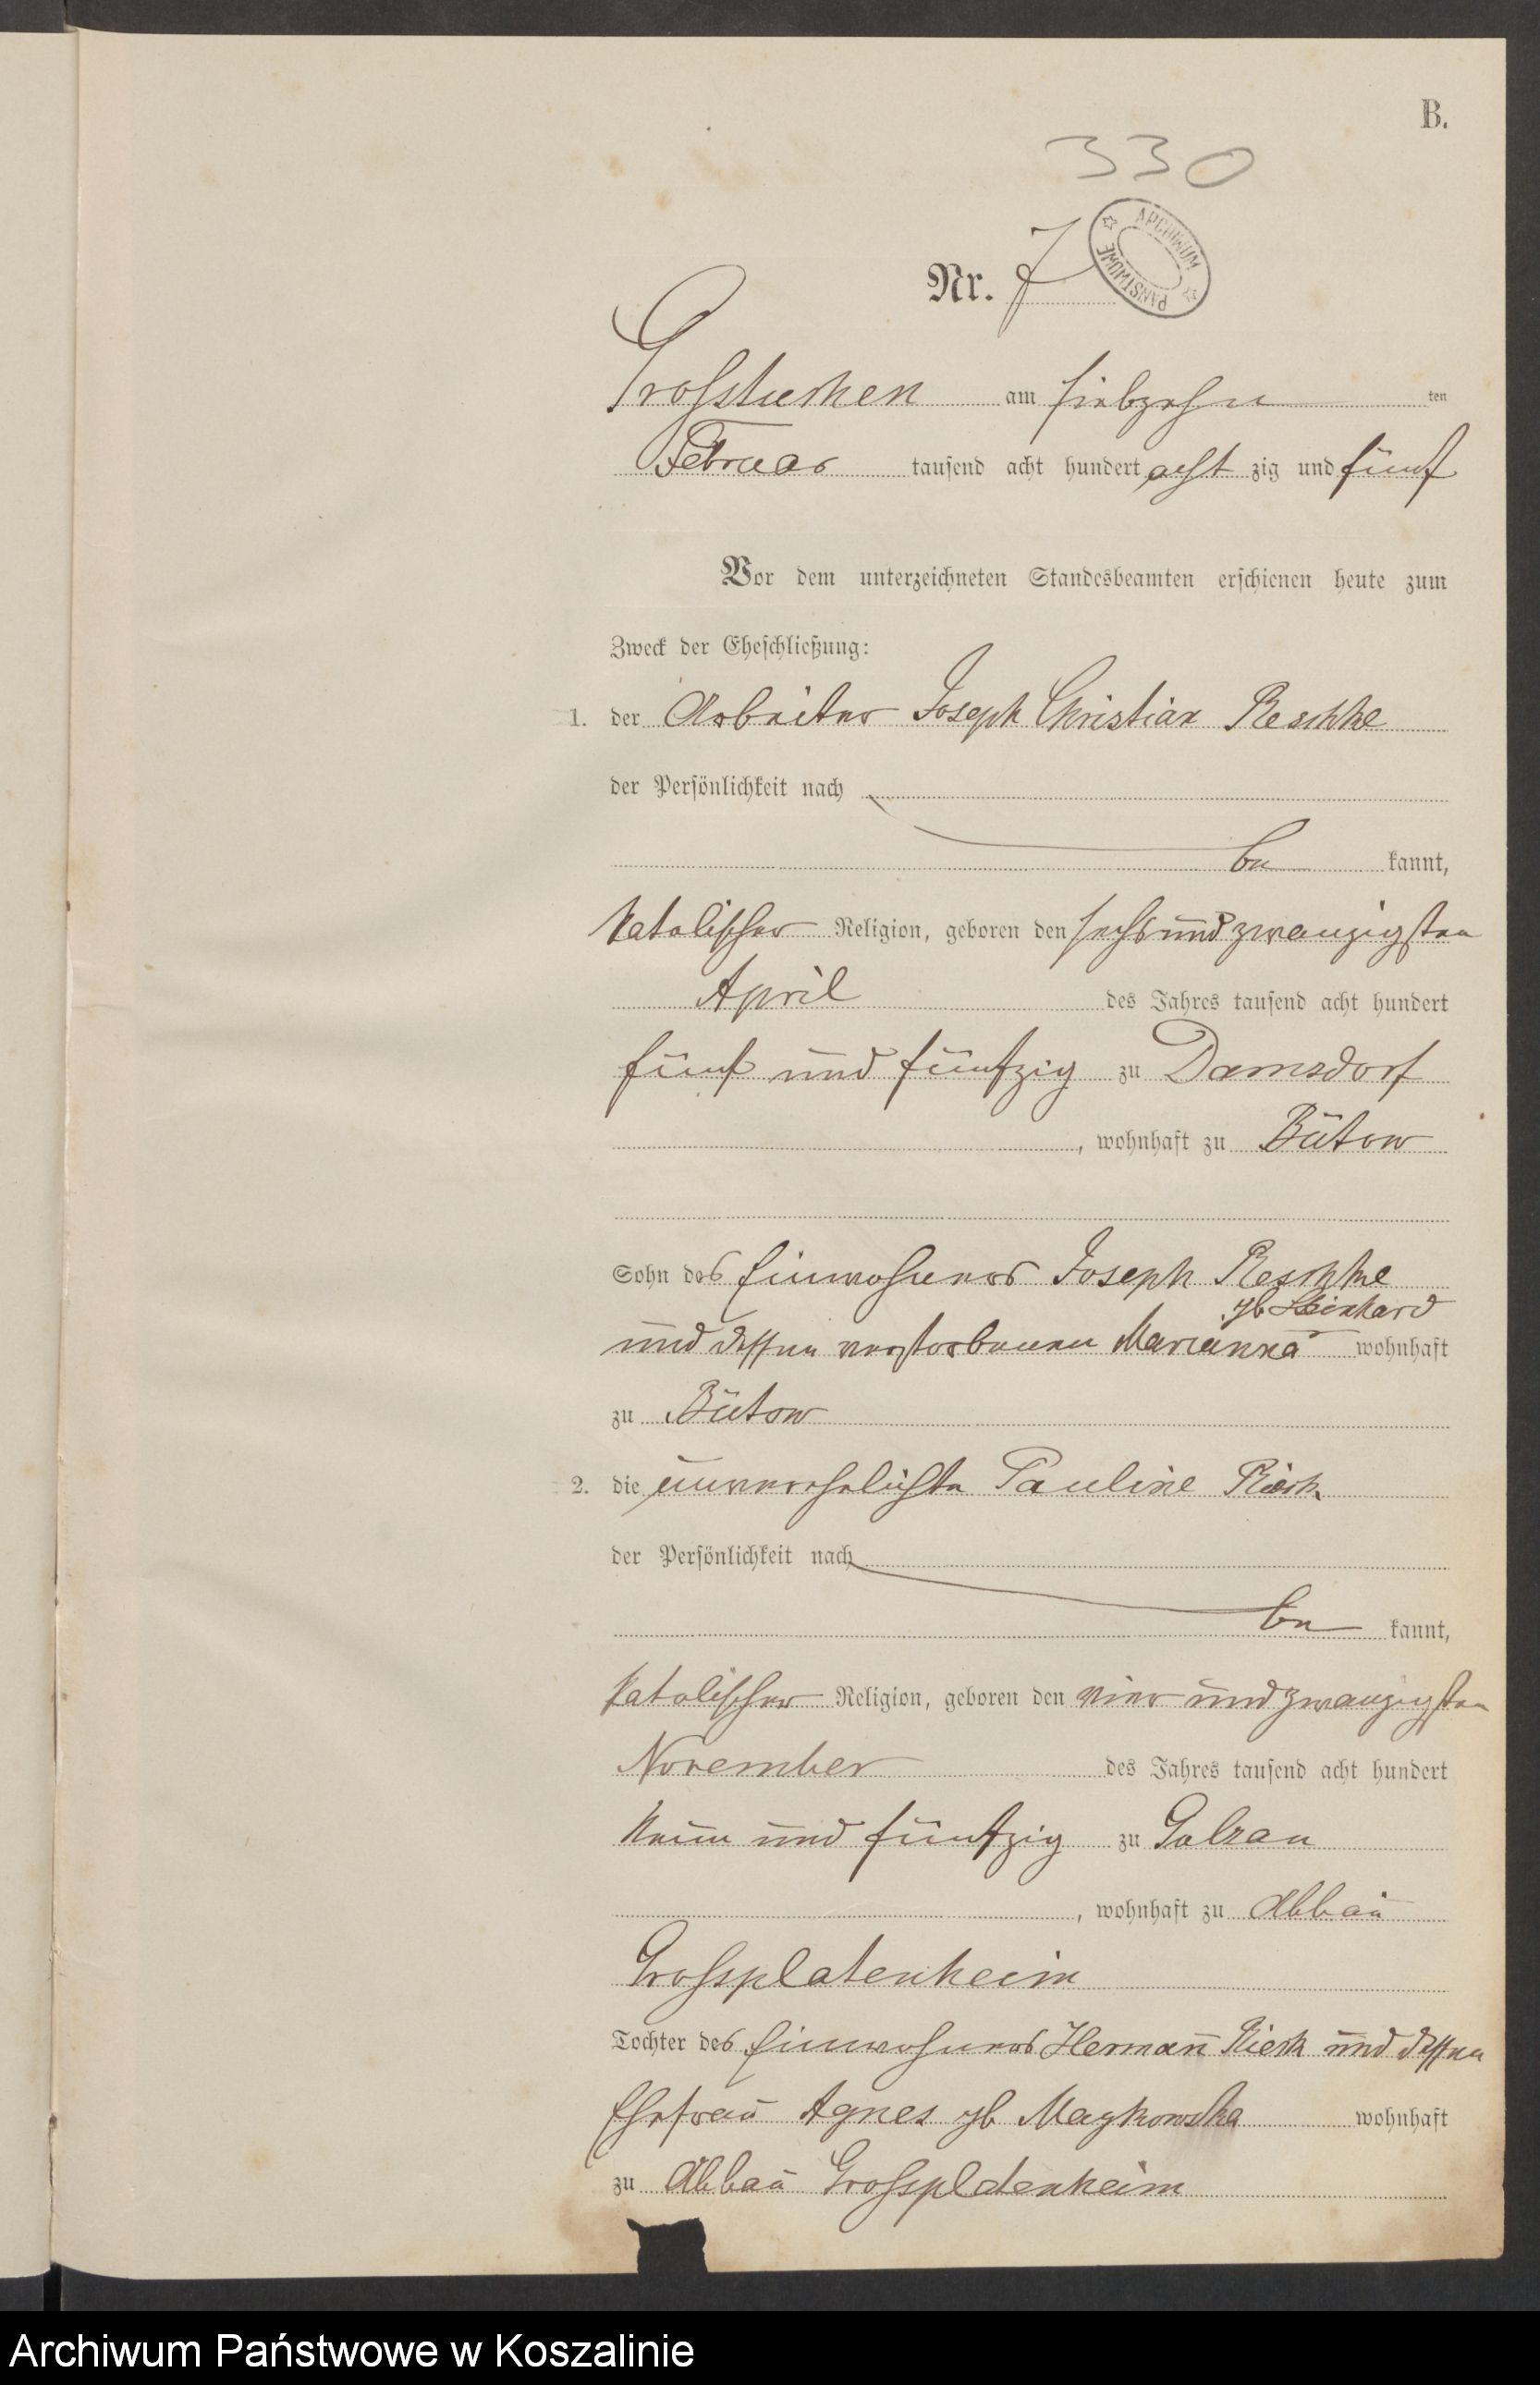 B.
330
Nr. 7
ARCHIWUM PAŃSTWOWE
Grosstuchen am siebzehn ten
Februar tausend acht hundert acht zig und fünf
Vor dem unterzeichneten Standesbeamten erschienen heute zum
Zweck der Eheschließung:
1. der Arbeiter Joseph Christian Reschke
der Persönlichkeit nach
be kannt,
katolischer Religion, geboren den sechsundzwanzigsten
April des Jahres tausend acht hundert
fünf und fünfzig zu Damsdorf
, wohnhaft zu Bütow
Sohn des Einwohners Joseph Reschke
gb
und dessen verstorbenen Marianna wohnhaft
zu Bütow
2. die unverehelichte Pauline
der Persönlichkeit nach
be kannt,
katolischer Religion, geboren den vier und zwanzigsten
November des Jahres tausend acht hundert
neun und fünfzig zu
, wohnhaft zu Abbau
Grossplatenheim
Tochter des Einwohners Hermann und dessen
Ehefrau Agnes gb wohnhaft
zu Abbau Grossplatenheim
Archiwum Państwowe w Koszalinie